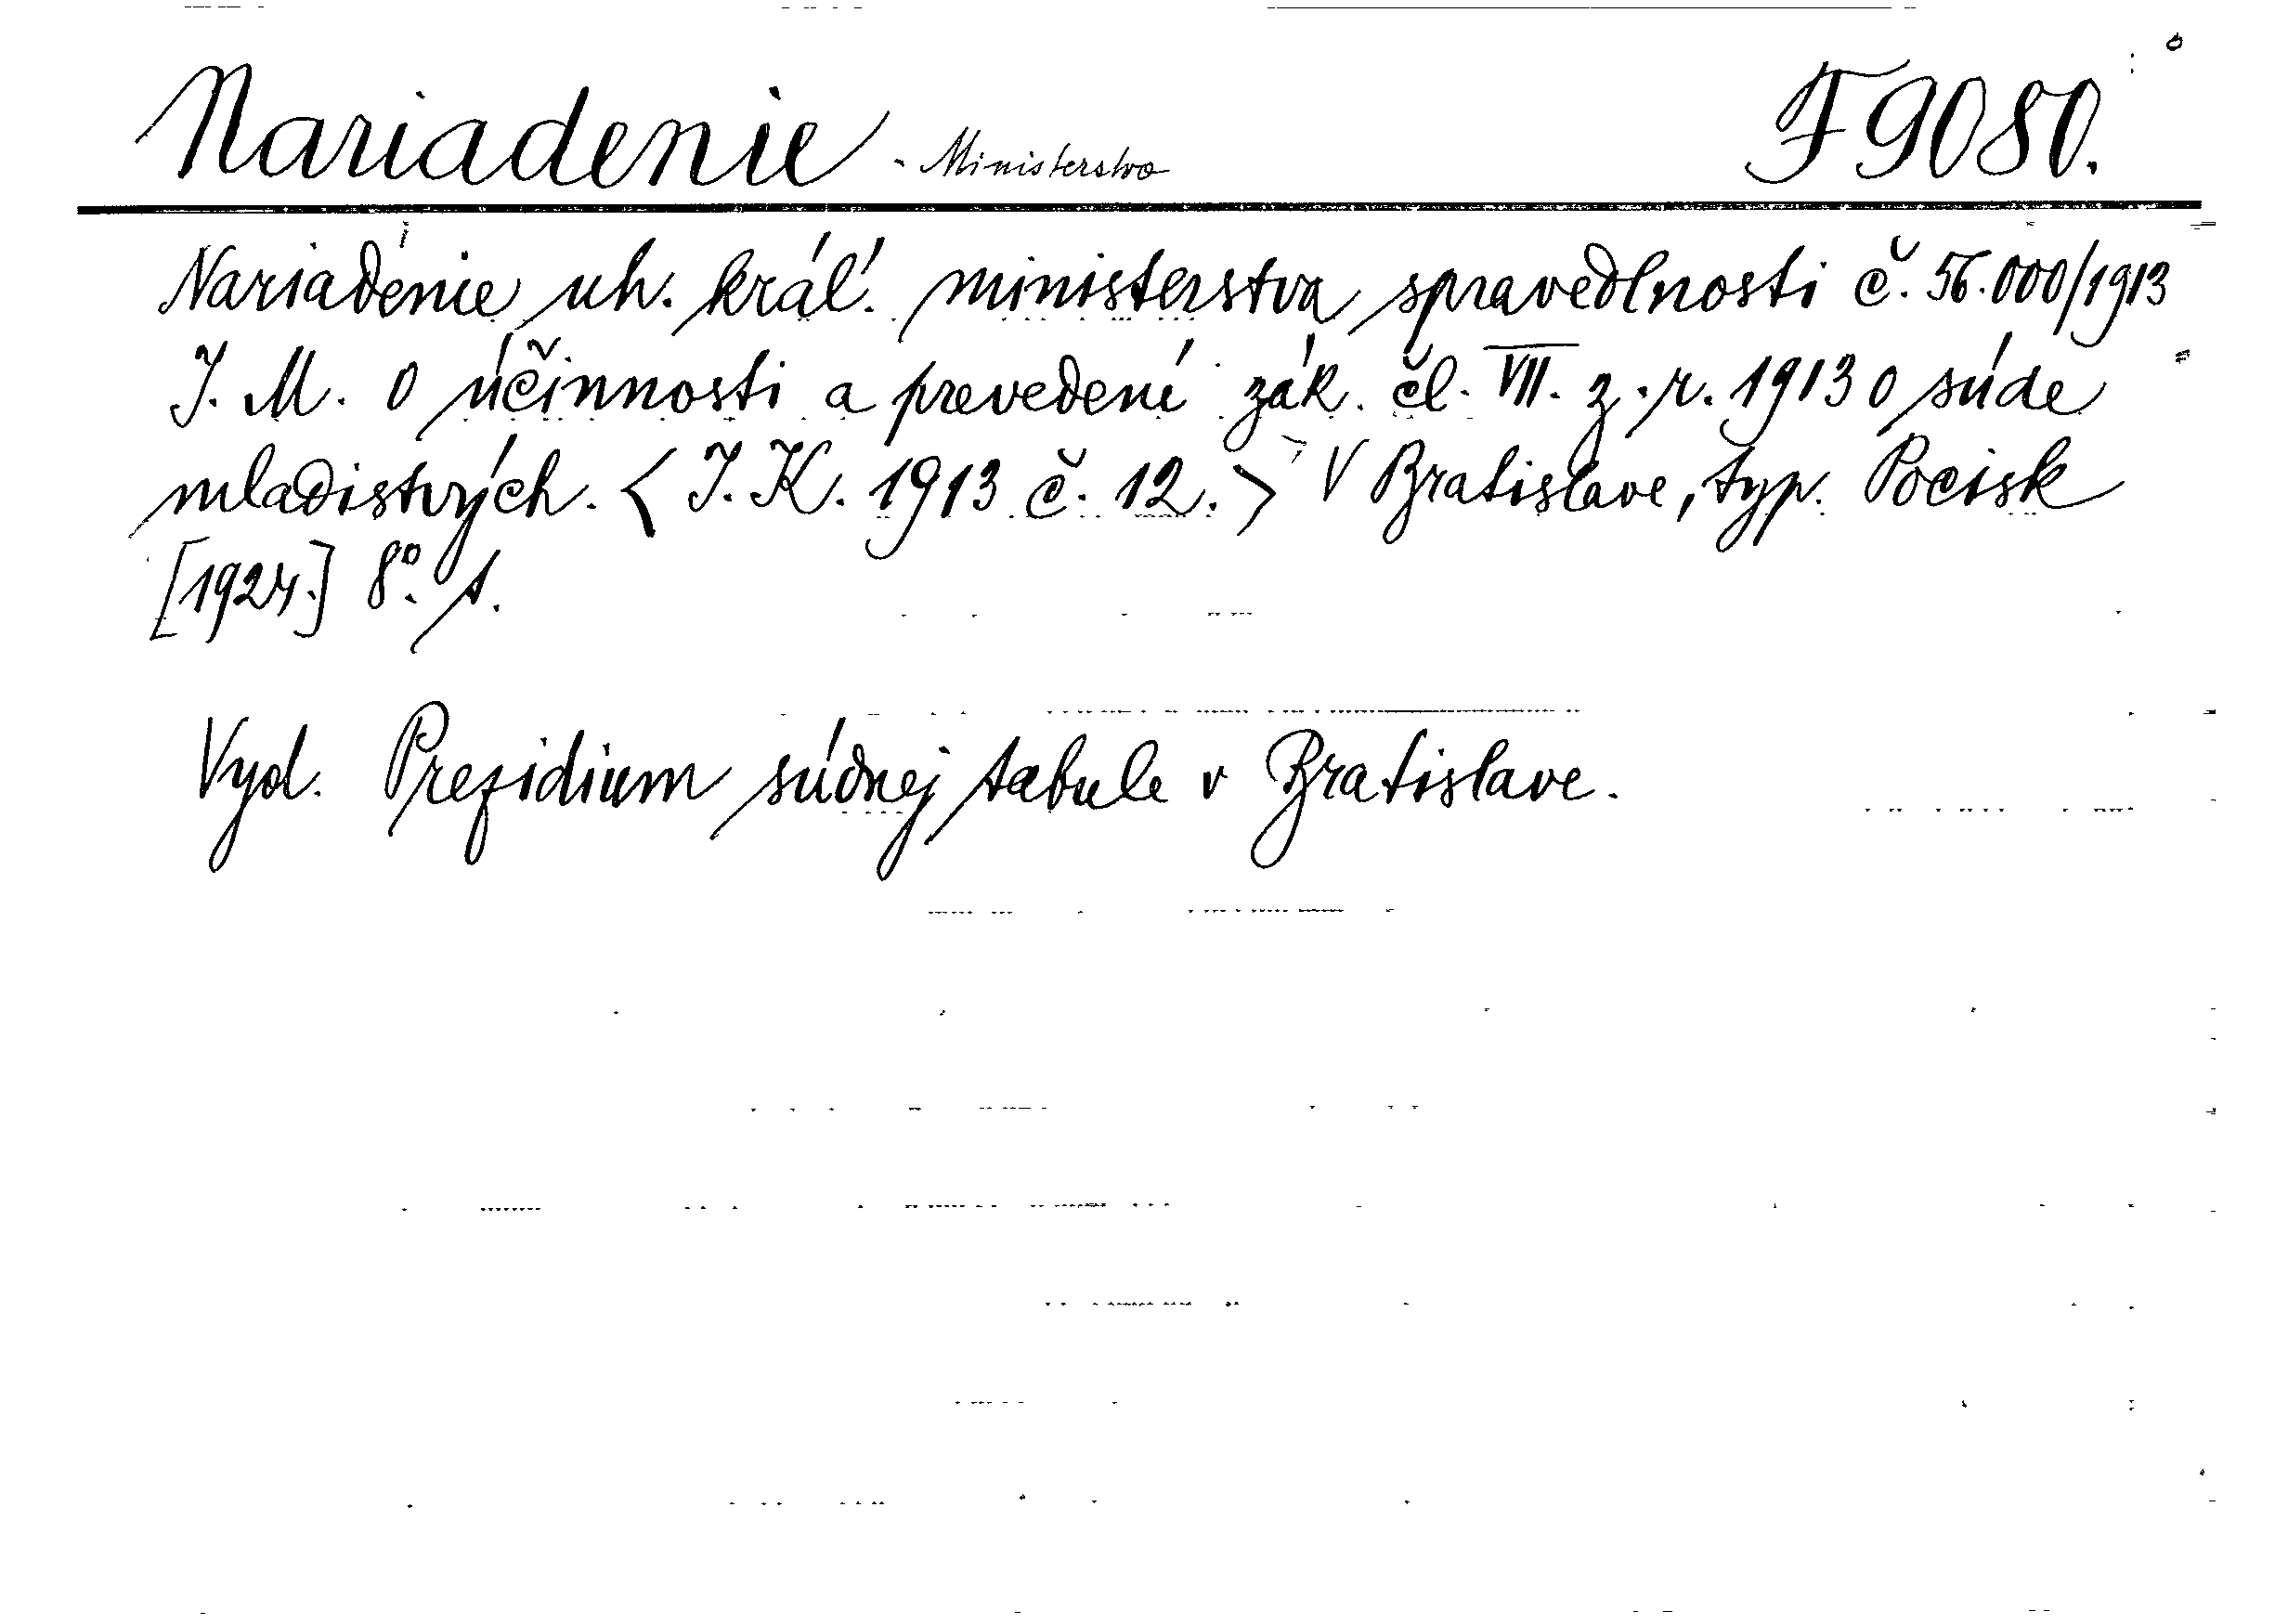 Nariadenie - Ministerstvo F 9080.
Nariadenie uh. kráľ. ministerstva spravedlnosti č. 56.000/1913
I. M. o účinnosti a prevedení zák. čl. VII. z. r. 1913 o súde
mladistvých. < I. K. 1913 č. 12. > V Bratislave, typ. Pocisk
[1924.] 8°. s.
Vyd. Prezidium súdnej tabule v Bratislave.